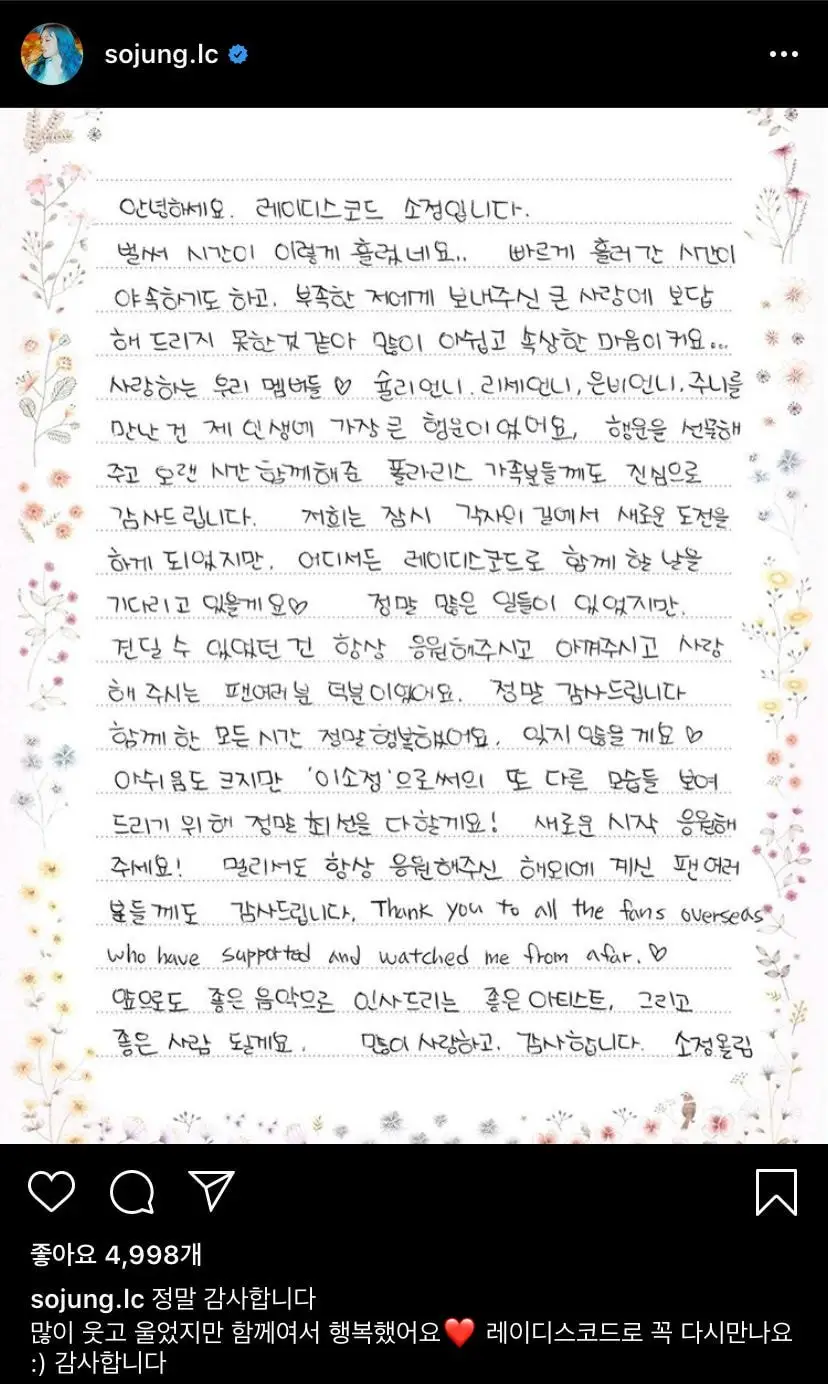 sojung.lc
안녕하세요. 레이디스코드 소정입니다.
벌써 시간이 이렇게 흘렀네요.. 빠르게 흘러간 시간이
야속하기도 하고, 부족한 저에게 보내주신 큰 사랑에 보답
해 드리지 못한것 같아 많이 아쉽고 속상한 마음이 커요...
사랑하는 우리 멤버들♡ 슐리언니, 리세언니, 은비언니, 주니를
만난 건 제 인생에 가장 큰 행운이었어요, 행운을 선물해
주고 오랜 시간 함께해준 폴라리스 가족분들께도 진심으로
감사드립니다. 저희는 잠시 각자의 길에서 새로운 도전을
하게 되었지만, 어디서든 레이디스코드로 함께 할 날을
기다리고 있을게요♡ 정말 많은 일들이 있었지만,
견딜 수 있었던 건 항상 응원해주시고 아껴주시고 사랑
해 주시는 팬여러분 덕분이었어요. 정말 감사드립니다
함께 한 모든 시간 정말 행복했어요. 잊지 않을게요♡
아쉬움도 크지만 '이소정'으로써의 또 다른 모습들 보여
드리기 위해 정말 최선을 다할게요! 새로운 시작 응원해
주세요! 멀리서도 항상 응원해주신 해외에 계신 팬 여러
분들께도 감사드립니다. Thank you to all the fans overseas
who have supported and watched me from afar.♡
앞으로도 좋은 음악으로 인사드리는 좋은 아티스트, 그리고
좋은 사람 될게요. 많이 사랑하고, 감사합니다. 소정올림
좋아요 4,998개
sojung.lc 정말 감사합니다
많이 웃고 울었지만 함께여서 행복했어요❤️ 레이디스코드로 꼭 다시만나요
:) 감사합니다